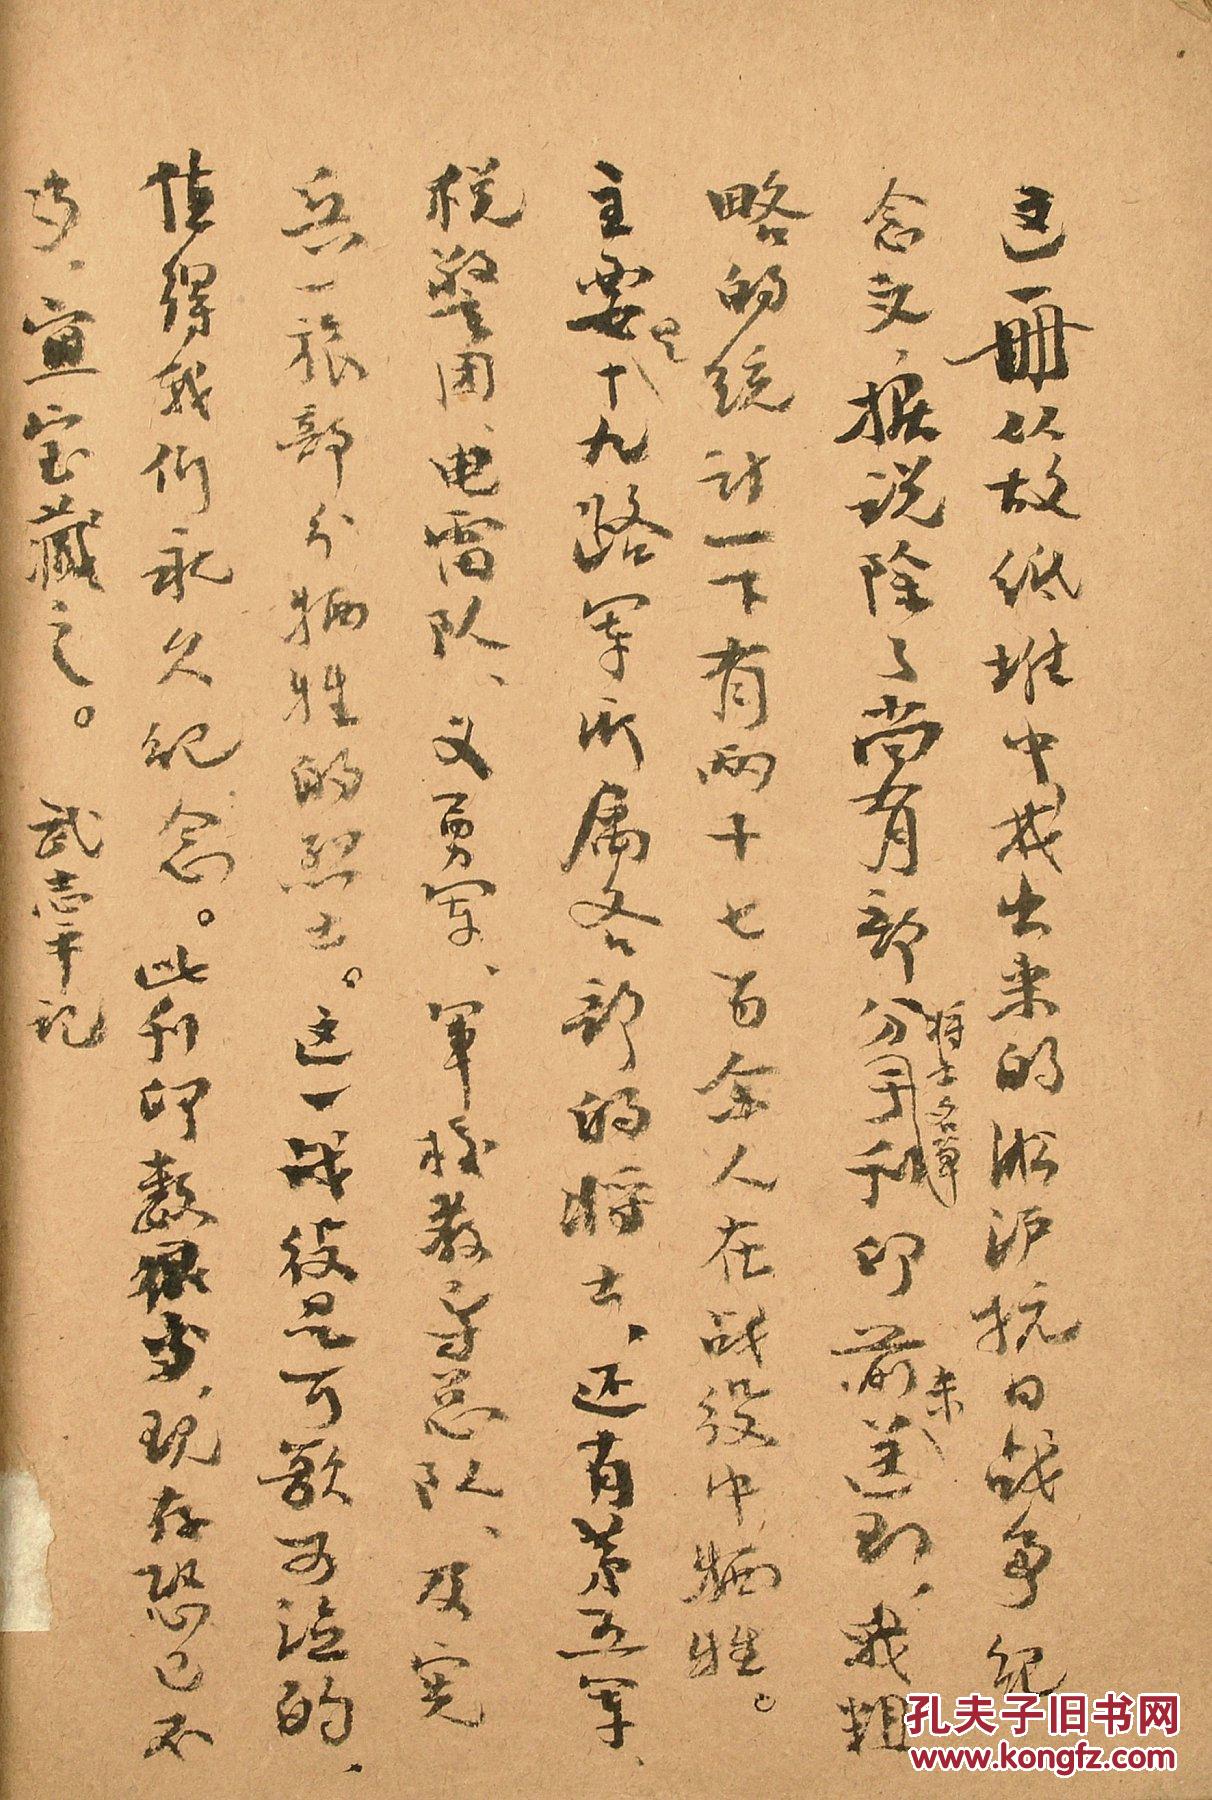 这一册从故纸堆中找出来的淞沪抗日战争纪
念文，据说除了尚有部分将士名单于刊印前未送到，我粗
略的统计一下有两千七百余人在战役中牺牲。
主要是十九路军所属各部的将士、还有第五军、
税警团、电雷队、义勇军、军校教导总队、及宪
兵一旅部分牺牲的烈士。这一战役是可歌可泣的，
值得我们永久纪念。此刊印数很少，现存恐已不
多，宜宝藏之。 武志平记
孔夫子旧书网
www.kongfz.com